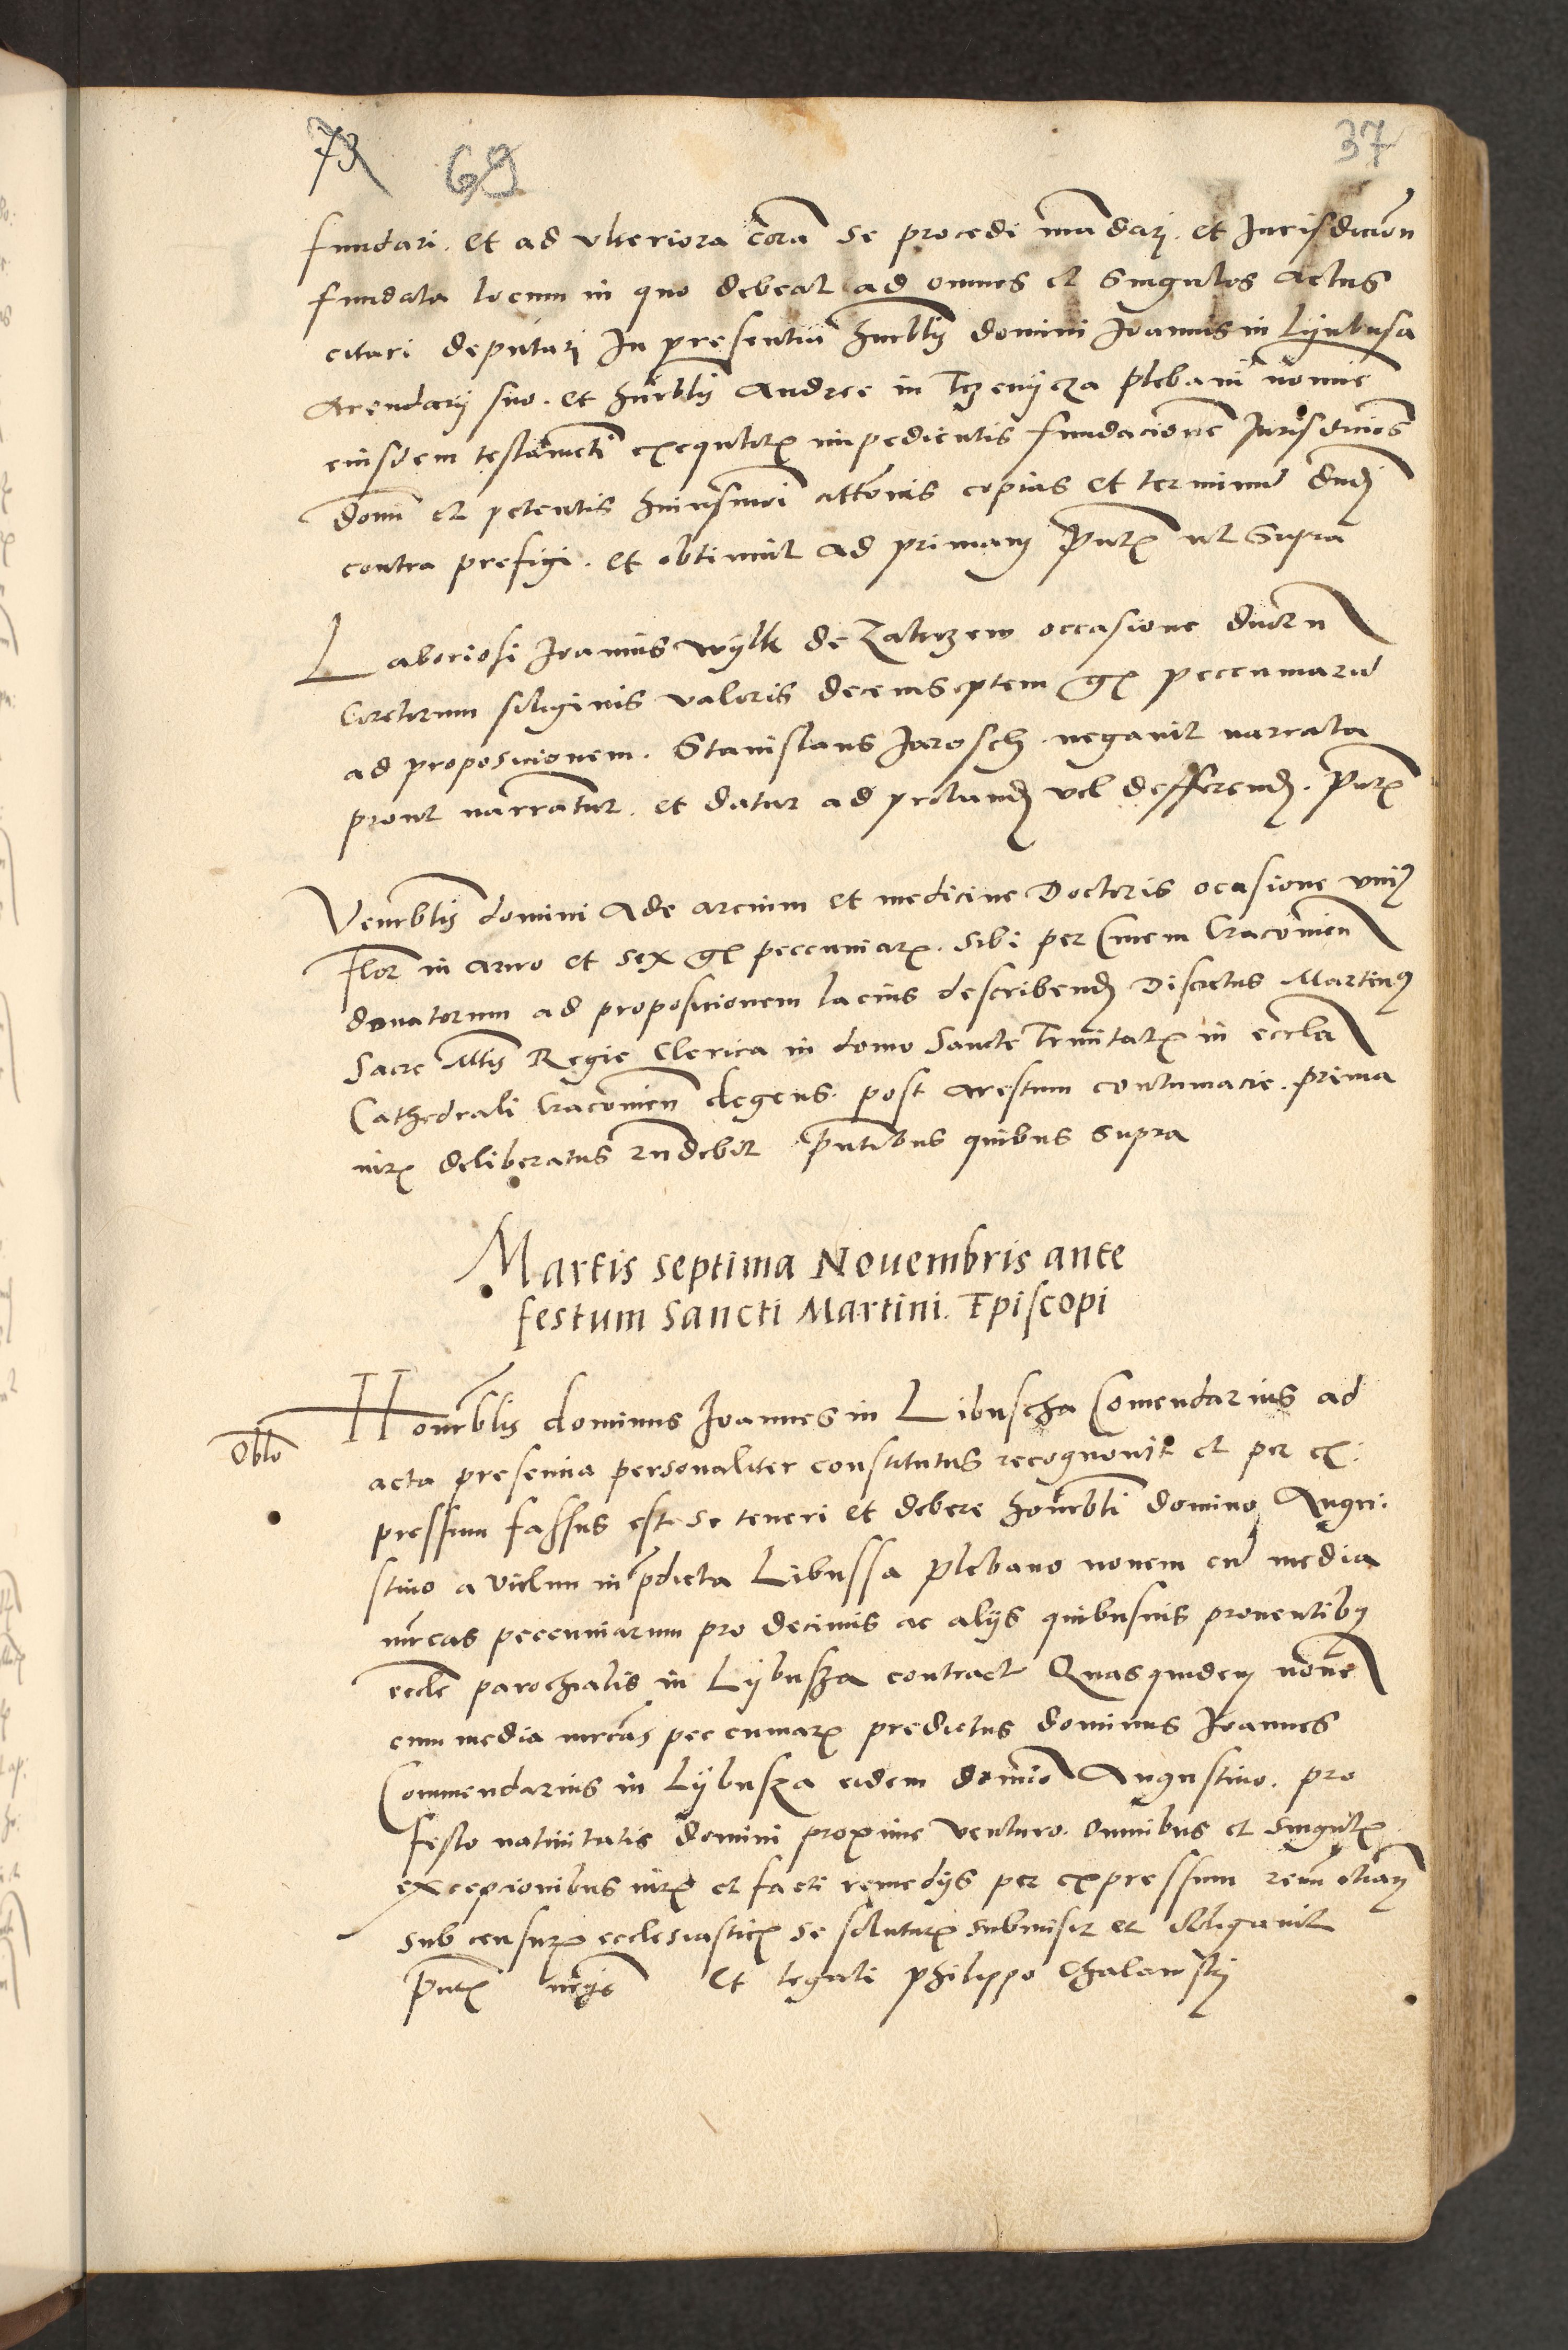 73 69 37
fundari. et ad vlteriora corã se procedi mãdarj. et Jurisdicion
fundata locum in quo debeat ad omnes et singulos actus
citari deputarj In presentia honrblis domini Joannis in Lyubusa
Arendarij suo. et honrblis Andree in plebani nomine
eiusdem testamēti impedientis fundacionē Jurisdicionis
domini et petentis huiusmodi copias et terminũ
contra prefigi. et obtinuit ad primam ut supra
Laboriosi Joannis wylk de Zaborzew occasione duorũ
Coretorum siliginis valoris decemseptem gr pecuniarũ
ad proposicionem. Stanislaus Jarosch negauit narrata
prout narrantur. et datur ad vel defferend.
Venerblis domini Ade arcium et medicine Doctoris ocasione vniꝰ
Flor in auro et sex gr pecuniarꝝ. sibi per Cracouien
donatorum ad proposicionem lacius describend Discretus Martinꝰ
Sacre Mtis Regie Clerica in domo Sancte Trinitatis in eccla
Cathedrali Cracouien degens. post arestum contumacie. prima
deliberatus rndebit pntibus quibus supra
Martis septima Nouembris ante
festum Sancti Martini. Episcopi
Oblo
Honrblis dominus Joannes in Libuscha Comendarius ad
acta presencia personaliter constitutus recognouit et per ex.
pressum fassus est se teneri et debere honrbli domino Augu.
stino a in pdicta Libussa plebano nouem cũ media
mrcas pecuniarum pro decimis ac alijs quibusuis prouentibꝰ
eccle parochialis in Lybusza contract Quasquidem nouē
cum media mrcas pecuniarꝝ predictus dominus Joannes
Commendarius in Lybusza eidem domino Augustino. pro
festo natiuitatis domini proxime venturo. omnibus et singulis
excepcionibus iuris et facti remedijs per expressum
sub censuris ecclesiasticis se soluturꝝ submisit et obligauit
et legali philippo